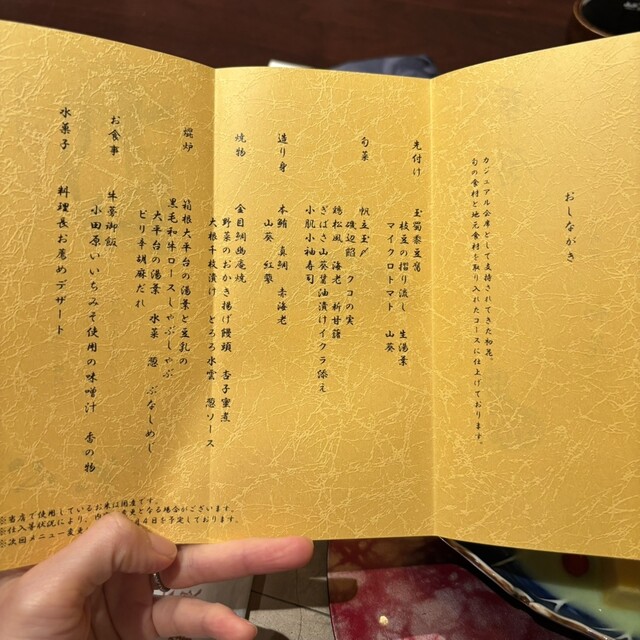 おしながき
カジュアル会席として支持されてきた初花。
旬の食材と地元食材を取り入れたコースに仕上げております。
先付け 玉蜀黍豆腐
枝豆の摺り流し 生湯葉
マイクロトマト 山葵
旬菜 帆立玉〆
磯辺餡 クコの実
鶏松風 海老 新甘藷
ぎばさ山葵醤油漬けイクラ添え
小肌小袖寿司
造り身 本鮪 真鯛 赤海老
山葵 紅蓼
焼物 金目鯛幽庵焼
野菜のおかき揚げ饅頭 杏子蜜煮
大根千枚漬け とろろ水雲 葱ソース
焜炉 箱根大平台の湯葉と豆乳の
黒毛和牛ロースしゃぶしゃぶ
大平台の湯葉 水菜 葱 ぶなしめじ
ピリ辛胡麻だれ
お食事 牛蒡御飯
小田原いいちみそ使用の味噌汁 香の物
水菓子 料理長お薦めデザート
※当店で使用しているお米は国産です。
※仕入等状況により、内 変更となる場合がございます。
※次回メニュー変更 4日を予定しております。